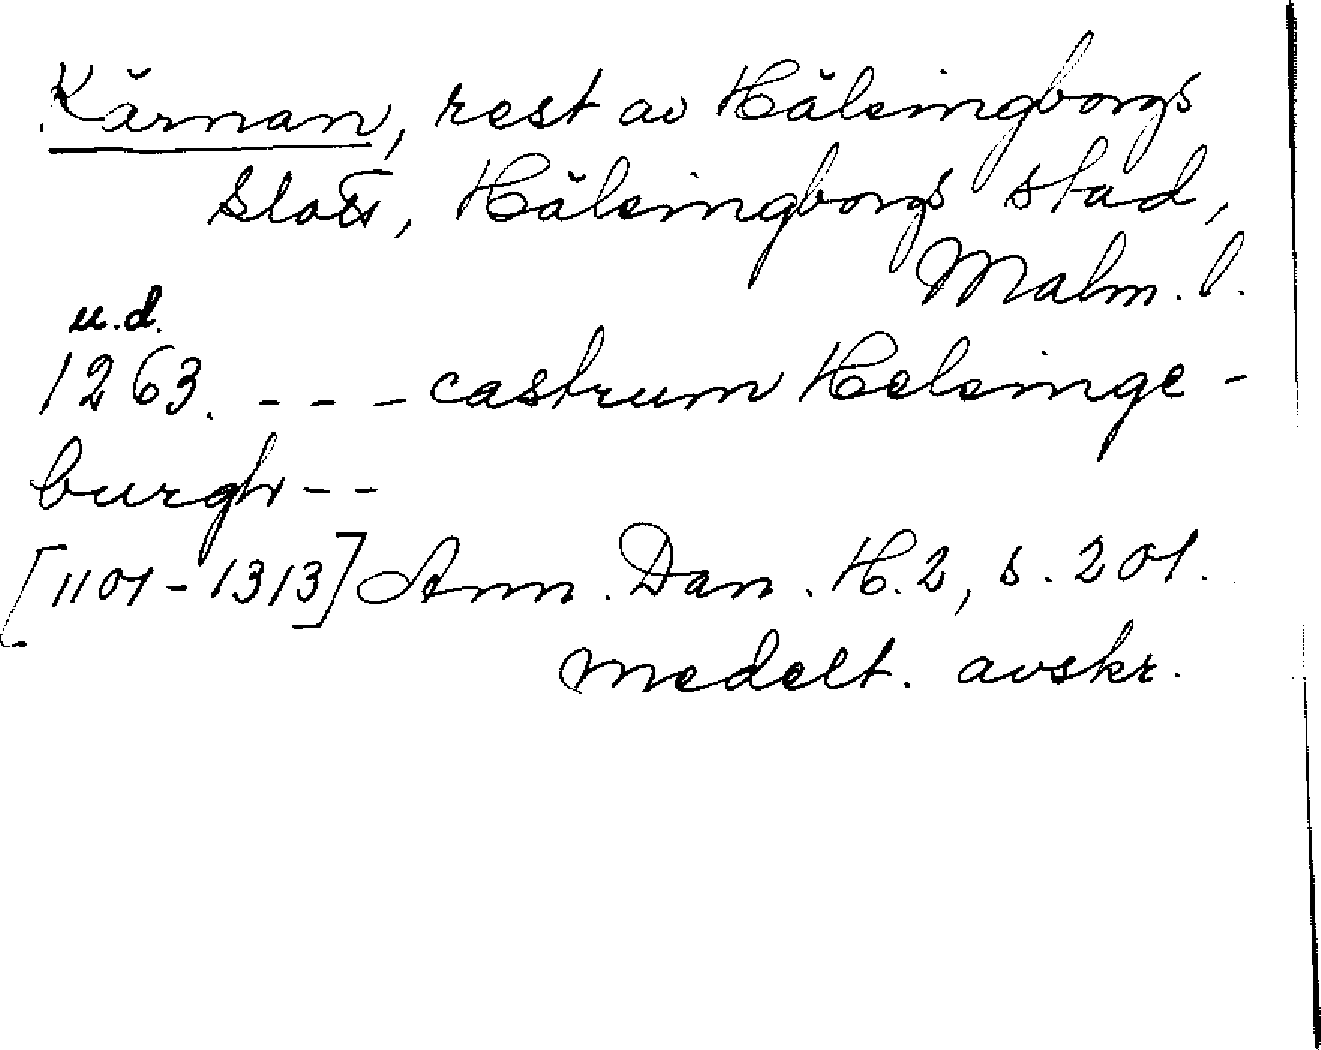 Kärnan, rest av Hälsingborgs
slott, Hälsingborgs stad,
Malm. l.
u.d.
1263. - - - castrum Helsinge-
burgh - -
[1101-1313] Ann. Dan. H. 2, s. 201.
medelt. avskr.